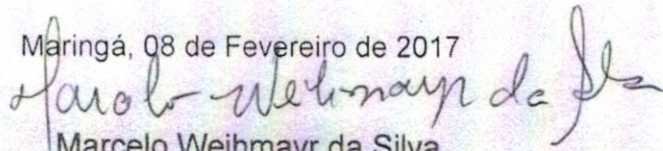 Maringá, 08 de Fevereiro de 2017
Marcelo Weihmayr da Silva
Marcelo Weihmayr da Silva